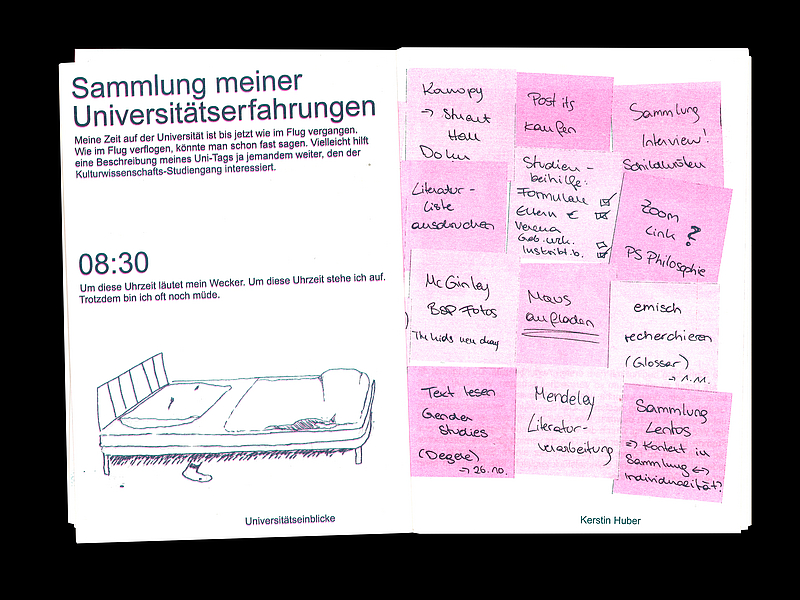 Sammlung meiner
Universitätserfahrungen
Meine Zeit auf der Universität ist bis jetzt wie im Flug vergangen.
Wie im Flug verflogen, könnte man schon fast sagen. Vielleicht hilft
eine Beschreibung meines Uni-Tags ja jemandem weiter, den der
Kulturwissenschafts-Studiengang interessiert.
08:30
Um diese Uhrzeit läutet mein Wecker. Um diese Uhrzeit stehe ich auf.
Trotzdem bin ich oft noch müde.
Universitätseinblicke
Kanopy
→ Stuart
Hall
Doku
Post its
kaufen
Sammlung
Interview!
Schildkröten
Literatur-
liste
ausdrucken
Studien-
beihilfe:
Formulare
Eltern €
Verena
Geb.urk.
Inskribt.b.
Zoom
Link ?
PS Philosophie
McGinley
BSP Fotos
The kids were okay
Maus
aufladen
emisch
recherchieren
(Glossar)
→ 1.11.
Text lesen
Gender
Studies
(Degele)
→ 26.10.
Mendeley
Literatur-
verarbeitung
Sammlung
Lentos
⇒ Kontext in
Sammlung ↔
Individualität?
Kerstin Huber